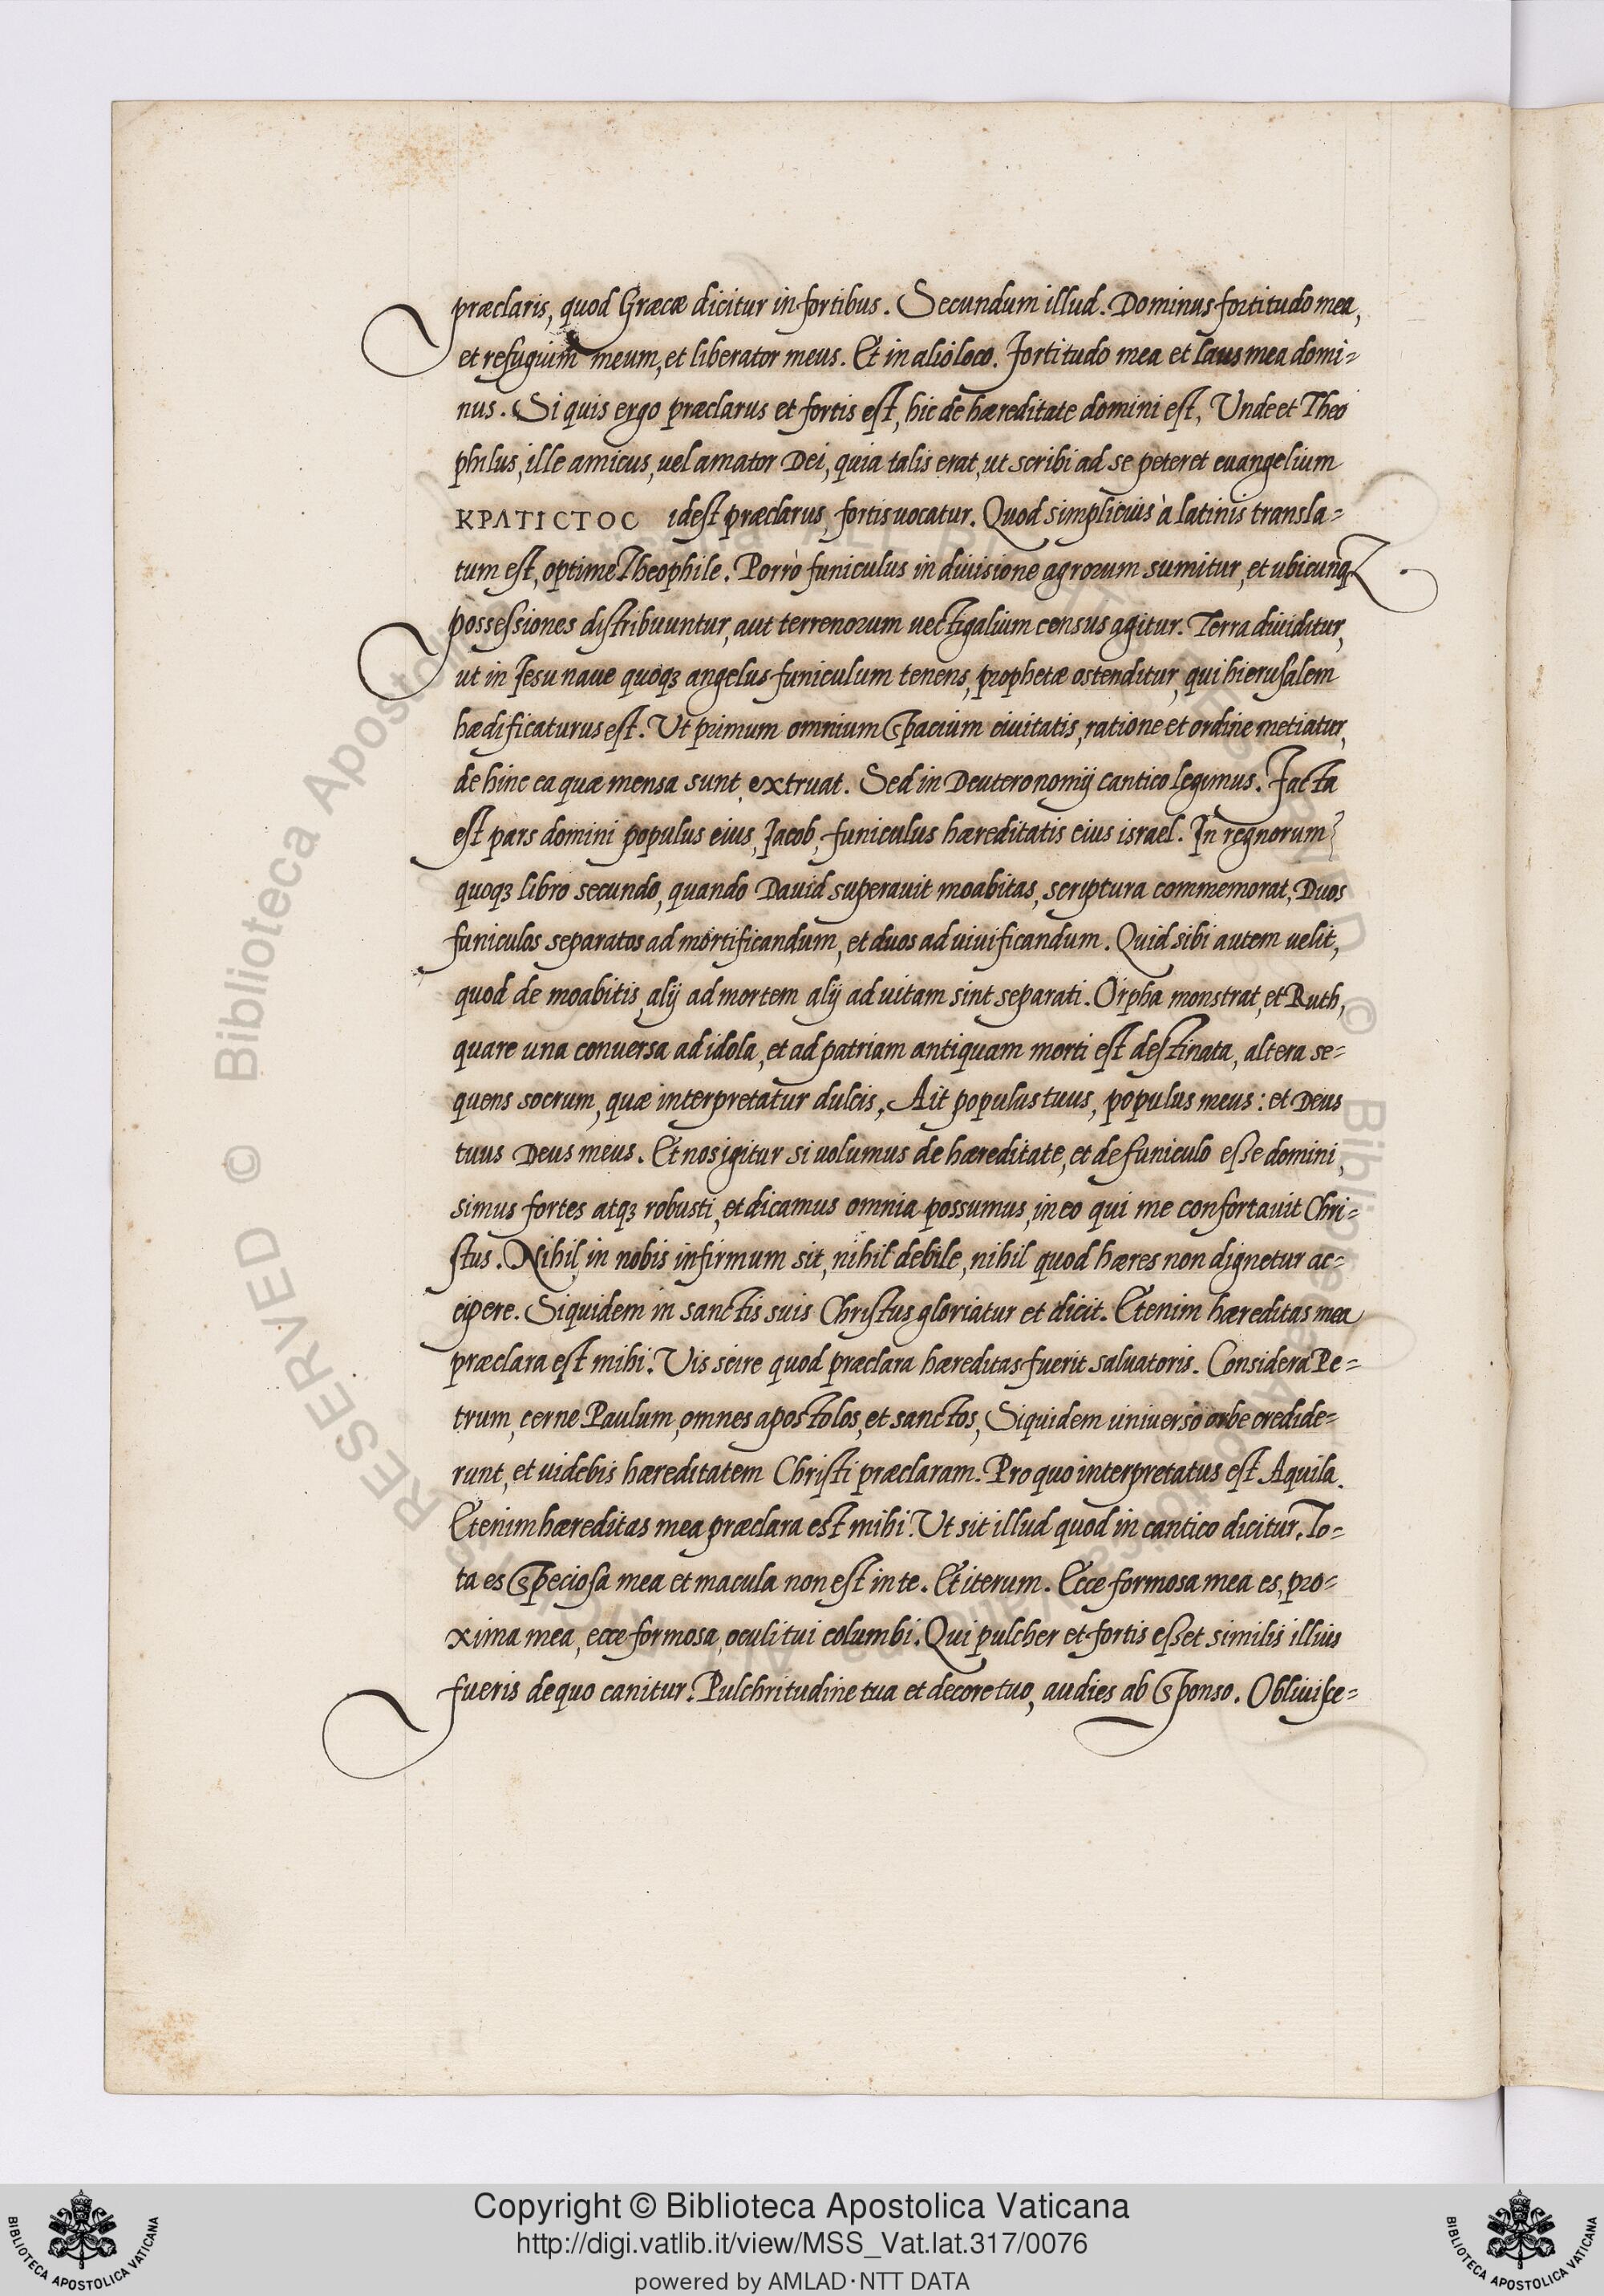 præclaris, quod Græcæ dicitur in fortibus. Secundum illud. Dominus fortitudo mea,
et refugium meum, et liberator meus. Et in alio loco. Fortitudo mea et laus mea domi=
nus. Si quis ergo præclarus et fortis est, hic de hæreditate domini est, Unde et Theo
philus, ille amicus, uel amator Dei, quia talis erat, ut scribi ad se peteret euangelium
ΚΡΑΤΙCΤΟC idest præclarus, fortis uocatur. Quod simplicius à latinis transla=
tum est, optime Theophile. Porrò funiculus in diuisione agrorum sumitur, et ubicunqȝ.
possessiones distribuuntur, aut terrenorum uectigalium census agitur. Terra diuiditur,
ut in Iesu naue quoqȝ angelus funiculum tenens, prophetæ ostenditur, qui hierusalem
hædificaturus est. Ut primum omnium spacium ciuitatis, ratione et ordine metiatur,
de hinc ea quæ mensa sunt, extruat. Sed in Deuteronomij cantico legimus. Facta
est pars domini populus eius, Jacob, funiculus hæreditatis eius israel. In regnorum
quoqȝ libro secundo, quando Dauid superauit moabitas, scriptura commemorat, Duos
funiculos separatos ad mortificandum, et duos ad uiuificandum. Quid sibi autem uelit,
quod de moabitis, alij ad mortem alij ad uitam sint separati. Orpha monstrat, et Ruth,
quare una conuersa ad idola, et ad patriam antiquam morti est destinata, altera se=
quens socrum, quæ interpretatur dulcis, Ait populus tuus, populus meus: et Deus
tuus Deus meus. Et nos igitur si uolumus de hæreditate, et de funiculo esse domini,
simus fortes atqȝ robusti, et dicamus omnia possumus, in eo qui me confortauit Chri=
stus. Nihil in nobis infirmum sit, nihil debile, nihil quod hæres non dignetur ac=
cipere. Siquidem in sanctis suis Christus gloriatur et dicit. Etenim hæreditas mea
præclara est mihi. Vis scire quod præclara hæreditas fuerit saluatoris. Considera Pe=
trum, cerne Paulum, omnes apostolos, et sanctos, Siquidem uniuerso orbe credide=
runt, et uidebis hæreditatem Christi præclaram. Pro quo interpretatus est Aquila.
Etenim hæreditas mea præclara est mihi. Ut sit illud quod in cantico dicitur. To=
ta es speciosa mea et macula non est in te. Et iterum. Ecce formosa mea es, pro=
xima mea, ecce formosa, oculi tui columbi. Qui pulcher et fortis esset similis illius
fueris de quo canitur. Pulchritudine tua et decore tuo, audies ab sponso. Obliuisce=
Copyright © Biblioteca Apostolica Vaticana
http://digi.vatlib.it/view/MSS_Vat.lat.317/0076
powered by AMLAD·NTT DATA
BIBLIOTECA APOSTOLICA VATICANA
BIBLIOTECA APOSTOLICA VATICANA